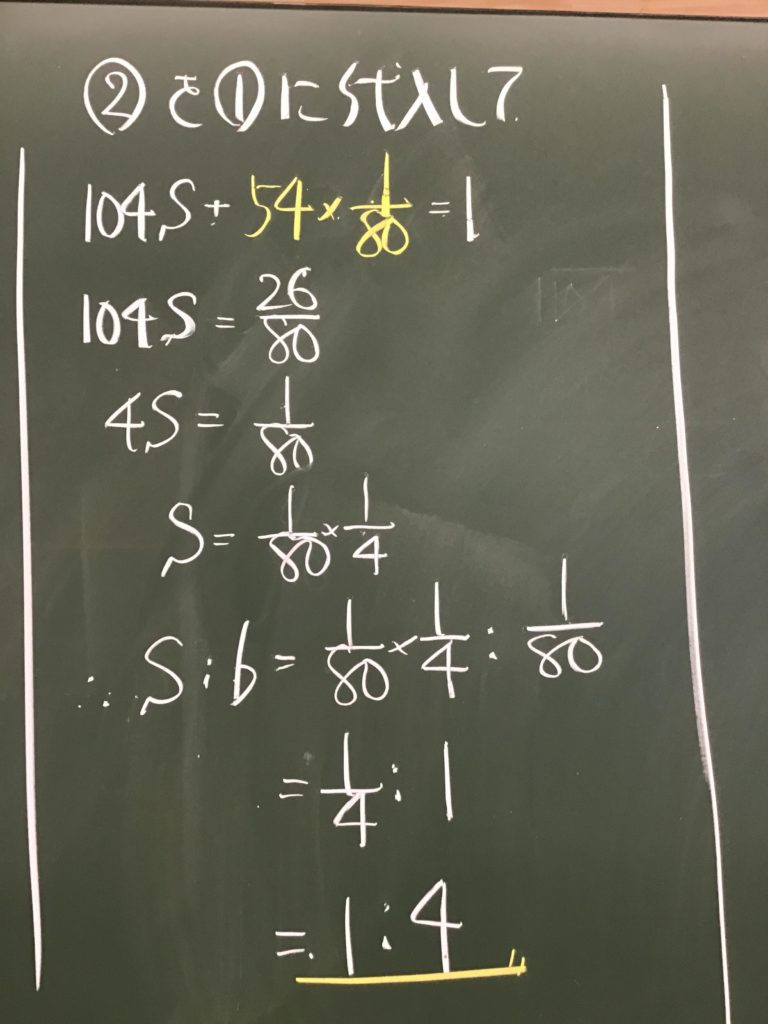 ②を①に代入して
104S + 54 × 1/80 = 1
104S = 26/80
4S = 1/80
S = 1/80 × 1/4
∴ S : b = 1/80 × 1/4 : 1/80
= 1/4 : 1
= 1 : 4